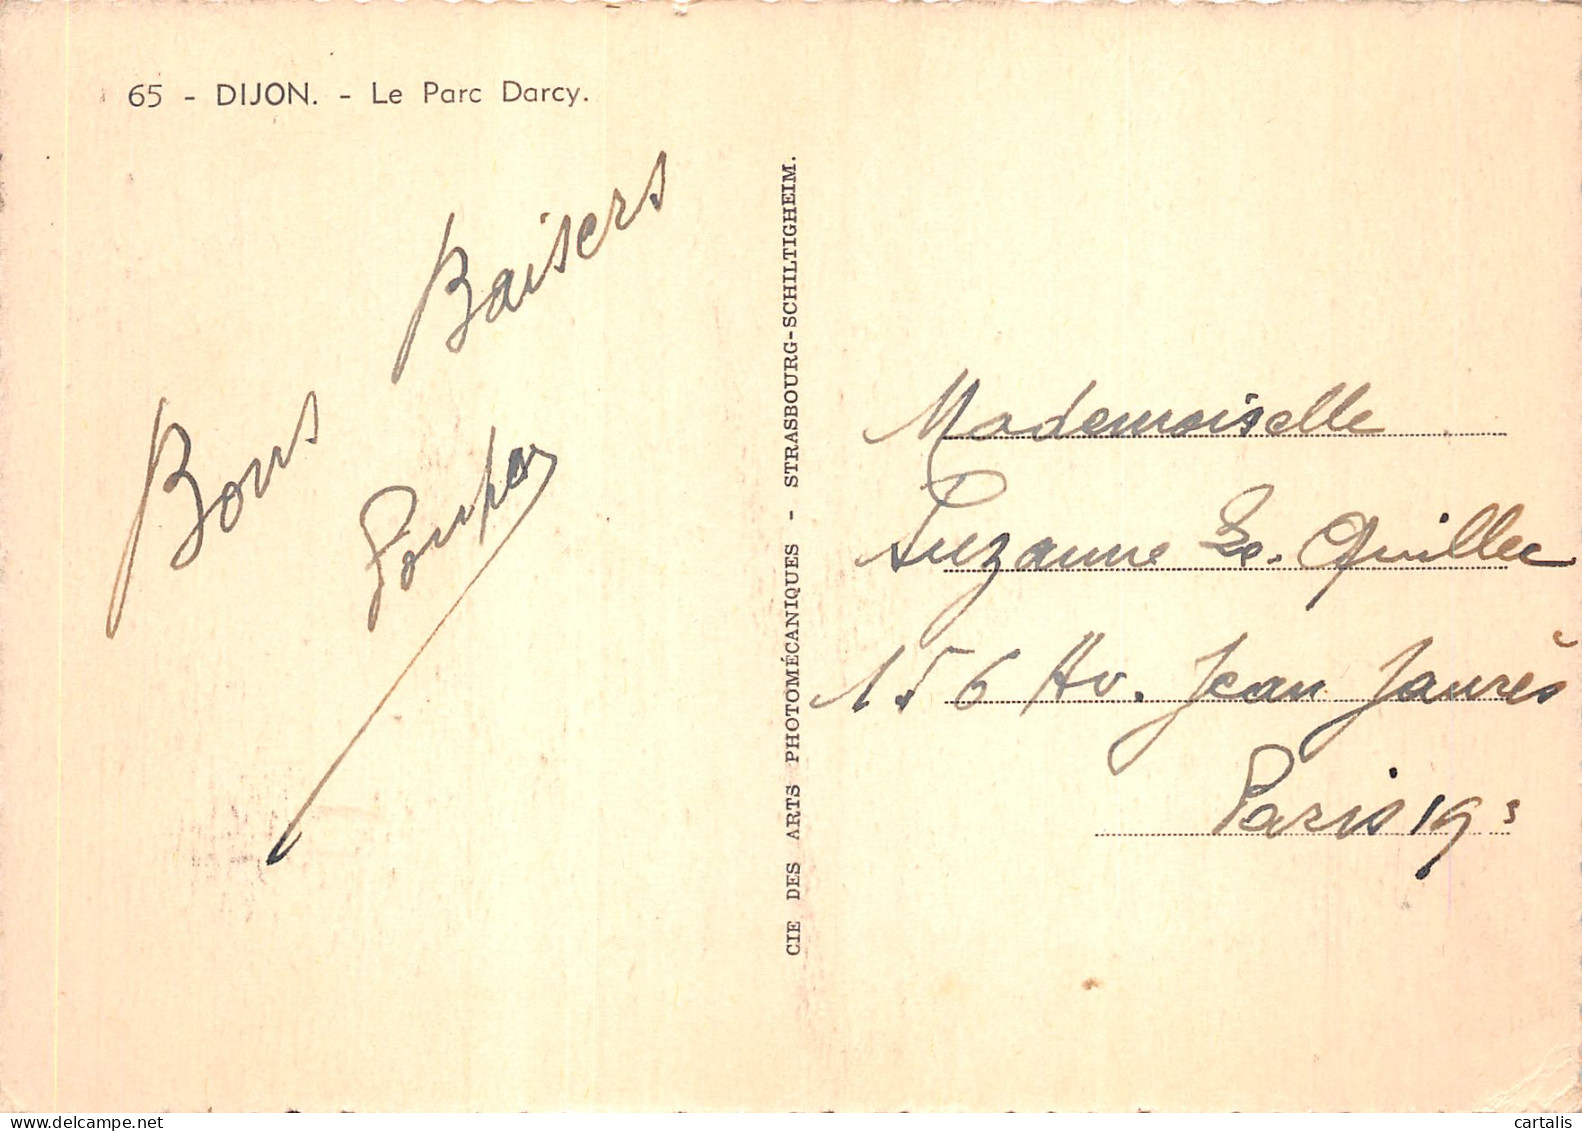 65 - DIJON. - Le Parc Darcy.
Bons Baisers
CIE DES ARTS PHOTOMÉCANIQUES - STRASBOURG-SCHILTIGHEIM.
Mademoiselle
Suzanne Le Quillec
156 Av. Jean Jaurès
Paris 19
cartalis